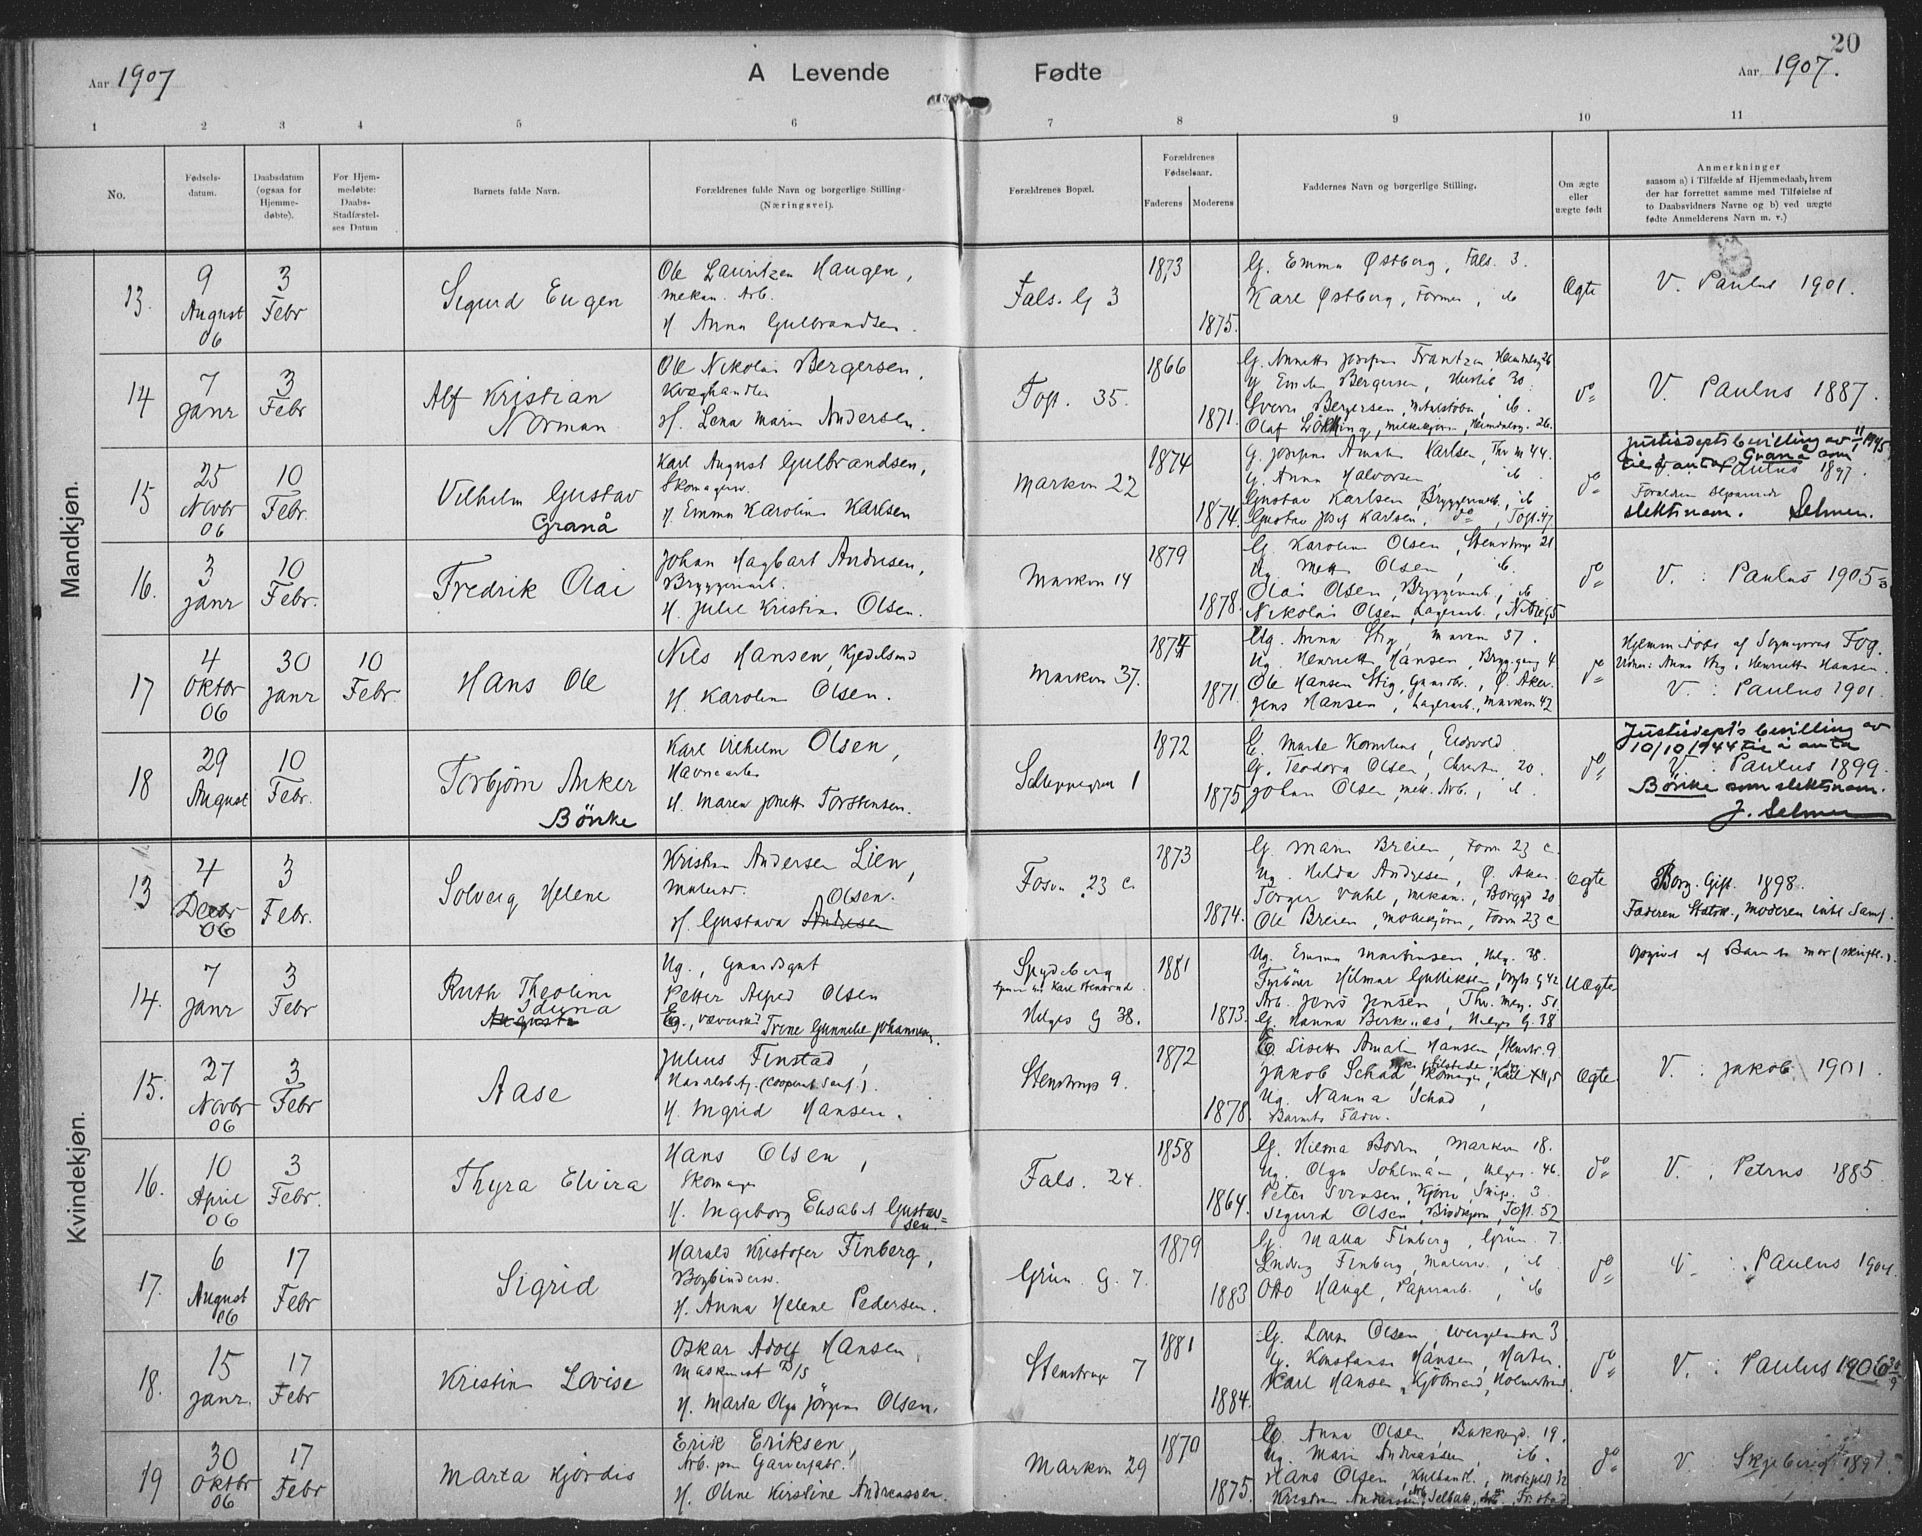 20
Aar 1907
A Levende Fødte
Aar 1907.
1 2 3 4 5 6 7 8 9 10 11
No.
Fødsels-
datum.
Daabsdatum
(ogsaa for
Hjemme-
døbte).
For Hjem-
medøbte:
Daabs-
Stadfæstel-
ses Datum
Barnets fulde Navn.
Forældrenes fulde Navn og borgerlige Stilling
(Næringsvei).
Forældrenes Bopæl.
Forældrenes
Fødselsaar.
Faderens Moderens
Faddernes Navn og borgerlige Stilling.
Om ægte
eller
uægte født
Anmerkninger
saasom a) i Tilfælde af Hjemmedaab, hvem
der har forrettet samme med Tilføielse af
to Daabsvidners Navne og b) ved uægte
fødte Anmelderens Navn m. v.)
Mandkjøn.
13.
9
August
06
3
Febr
Sigurd Eugen
Ole Lauritzen Haugen,
mekan. Arb.
H. Anna Gulbrandsen.
Fals. G 3
1873
1875.
G. Emma Østberg, Fals. 3.
Karl Østberg, Former, ib
Ægte
V. Paulus 1901.
14
7
Janr
3
Febr
Alf Kristian
Norman
Ole Nikolai Bergersen,
Kvæghandler
H. Lena Marie Andersen.
Toft. 35.
1866
1871.
G. Annette Josefine Frantzen, Heimdalsg 26
Bergersen, 30.
Sverre Bergersen, Metalstøber, ib.
Olaf Løkking, Melkekjører, Heimdalsg. 26.
do
V. Paulus 1887.
15
25
Novbr
06
10
Febr.
Vilhelm Gustav
Granå
Karl August Gulbrandsen,
Skomagersv.
H. Emma Karoline Karlsen
Markvn 22
1874
1874.
G. Josefine Amalie Karlsen, Thv m 44.
G. Anna Halvorsen, ib.
Gustav Karlsen, Bryggeriarb., ib
Gustav Josef Karlsen, do, Toft. 47
do
Justisdepts bevilling av 11/1 1945
til å anta Granå som
Paulus 1897
slektsnavn. Selmer.
16.
3
Janr
10
Febr.
Fredrik Olai
Johan Hagbart Andresen,
Bryggeriarb.
H. Julie Kristine Olsen.
Markvn 14
1879
1878.
G. Karoline Olsen, Stenstrups 21
Ug. Mette Olsen, ib.
Olai Olsen, Bryggeriarb., ib
Nikolai Olsen, Lagerarb.,
do
V. : Paulus 1905
17
4
Oktbr
06
30
Janr
10
Febr.
Hans Ole
Nils Hansen, Kjedelsmed
H. Karoline Olsen.
Markvn 37.
1874
1871.
Ug. Anna Stig, Markvn 37.
Ug. Henriette Hansen, Brygg.gang 4
Ole Hansen Stig, Gaardbr., Ø. Aker.
Jens Hansen, Lagerarb., Markvn 42
do
Hjemmedøbt af Sognepres Fog.
Vidner: Anna Stig, Henriette Hansen
V. : Paulus 1901.
18
29
August
10
Febr.
Torbjørn Anker
Bönke
Karl Vilhelm Olsen,
Havnearb.
H. Maren Jonette Torstensen.
Schleppegren 1
1872
1875
E. Marte Kornelius, Eidsvold.
G. Teodora Olsen, Christies 20.
Johan Olsen, mek. Arb., ib.
do
Justisdept's bevilling av
10/10 1944 til å anta
V. : Paulus 1899.
Bönke som slektsnavn.
J. Selmer
Kvindekjøn.
13
4
Decbr
06
3
Febr.
Solveig Helene
Kristian Andersen Lien,
Malersv.
Olsen.
H. Gustava Andersen
Fosvn. 23 c.
1873
1874.
G. Marie Breien, Fosvn 23 c.
Ug. Hilda Andresen, Ø. Aker.
Torger Vahl, mekan., Borggd 20
Ole Breien, Melkekjører, Fosvn 23 c
Ægte
Borg. Gift. 1898.
Faderen Statsk., Moderen intet Samf.
14.
7
Janr
3
Febr
Ruth Theoline
Iduna
Augusta
Ug., Gaardsgut
Petter Alfred Olsen
E., Væverske Trine Gunnilie Johannesen.
Spydeberg
Helges G 38.
1881
1873.
Ug. Emma Martinsen, Helg. 38.
Fyrbøter Hilmar Gulliksen, G 42
Arb. Jens Jensen, Thv. Mey. 51
G. Hanna Birkenæs, Helges G. 38
Uægte.
Opgivet af Barnets mor (skriftl.).
15.
27
Novbr
06
3
Febr
Aase
Julius Finstad,
(Cooperat. Samf.).
H. Ingrid Hansen.
Stenstrups 9.
1872
1878.
E. Lisette Amalie Hansen, Stenstr. 9
Jakob Schad, Skomager, Karl XII, 5
Ug. Nanna Schad,
Barnets Fader.
Ægte.
V. : Jakob 1901
16.
10
April
06
3
Febr.
Thyra Elvira
Hans Olsen,
Skomager
H. Ingeborg Elisabet Gustav-
sen.
Fals. 24.
1858
1864.
G. Hilma Boren, Markvn 18.
Ug. Olga Sohlman, Helges. 46.
Peter Svensen, Kjører, Snip. 3
Sigurd Olsen, Brødkjører, Toft. 52
do
V. : Petrus 1885.
17.
6
August
06
17
Febr
Sigrid
Harald Kristofer Finberg,
Bogbindersv.
H. Anna Helene Pedersen.
Grün. G. 7.
1879
1883
G. Malla Finberg, Grün. 7.
Ludvig Finberg, Malersv., ib.
Otto Haugl, Papirarb., ib
do
V. : Paulus 1904.
18.
15
Janr.
17
Febr
Kristine Lovise
Oskar Adolf Hansen,
Maskinist D/S
H. Marta Olga Jörgine Olsen.
Stenstrups 7
1881
1884.
G. Lovise Olsen, Wergelandsv 3.
G. Konstanse Hansen, Horten.
Karl Hansen, Kjøbmand, Holmestrand.
do
V. : Paulus 1906 30/9
19
30
Oktbr
06
17
Febr
Marta Hjördis
Erik Eriksen,
Arb. paa Garverifabr.
H. Oline Kirstine Andreassen.
Markvn 29
1870
1875.
E. Anna Olsen, Bakkegd. 19.
Ug. Marie Andreassen, ib.
Hans Olsen, Kulhandl.,
Kristian Andersen, Selbak, Fr.stad
do
V. Skjeberg 1897